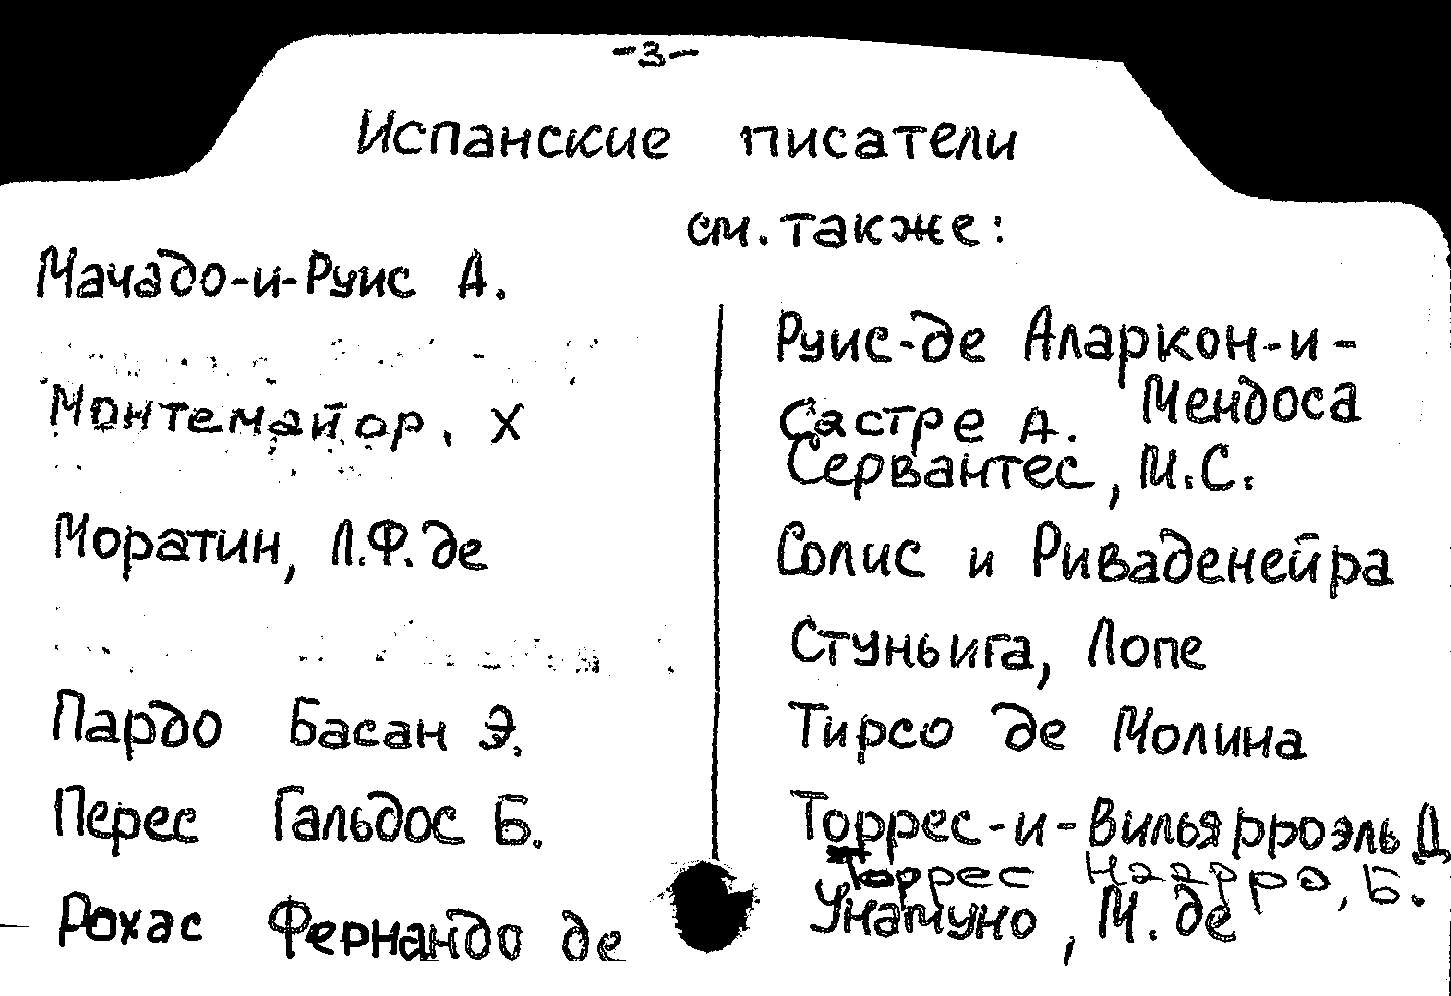 -3-
Испанские писатели
см. также:
Мачадо-и-Руис А.
Монтемайор, Х
Моратин, Л.Ф. де
Пардо Басан Э.
Перес Гальдос Б.
Рохас Фернандо де
Руис-де Аларкон-и-
Мендоса
Састре А.
Сервантес, М.С.
Солис и Риваденейра
Стуньига, Лопе
Тирсо де Молина
Торрес-и-Вильярроэль Д
Торрес Наарро, Б.
Унамуно, М. де